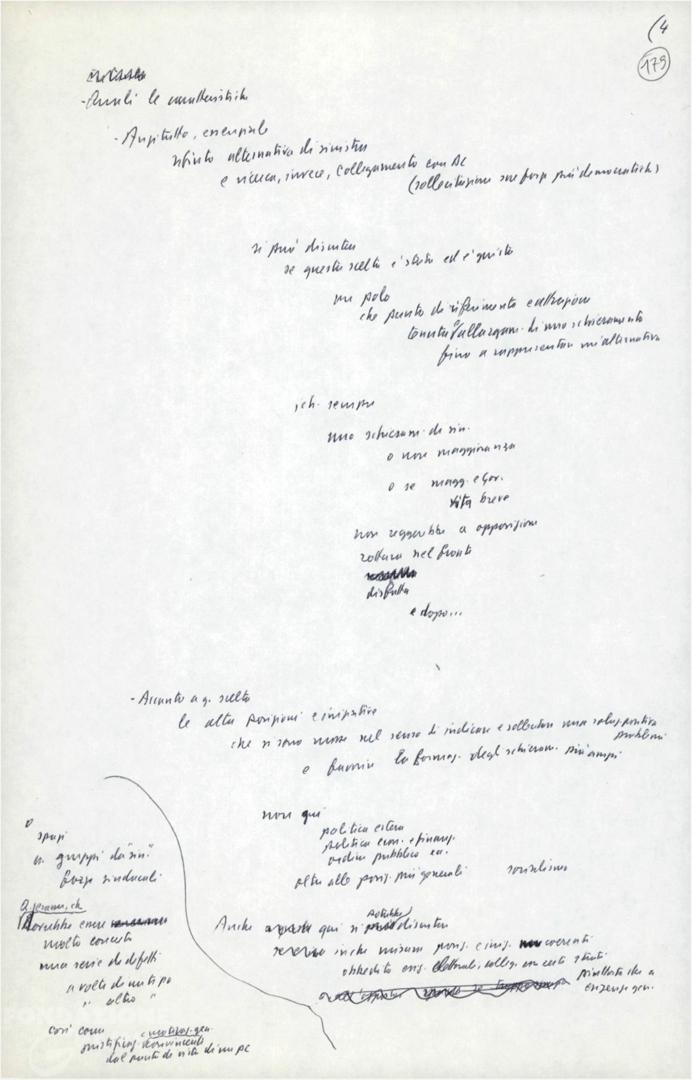 (4
179
- Quali le caratteristiche
- Anzitutto, essenziale
rifiuto alternativa di sinistra
e ricerca, invece, collegamento con DC
(sollecitazione sue forze più democratiche)
si può discutere
se questa scelta è stata ed è giusta
un polo
che punto di riferimento e attrazione
tenuta e allargam. di uno schieramento
fino a rappresentare un'alternativa
sch. sempre
uno schieram. di sin.
o non maggioranza
o se magg. e Gov.
vita breve
non reggerebbe a opposizione
rottura nel fronte
disfatta
e dopo...
- Accanto a q. scelta
le altre posizioni e iniziative
che si sono mosse nel senso di indicare e sollecitare una soluz. positiva
problemi
e favorire la formaz. degli schieram. più ampi
non qui
politica estera
politica econ. e finanz.
ordine pubblico ecc.
oltre alle posiz. più generali socialismo
Anche qui si potrebbe discutere
in che misura posiz. e iniz. coerenti
obbedito esig. elettorali, colleg. con certi strati
piuttosto che a
esigenze gen.
o
spazi
a gruppi da "sin."
forze sindacali
Q. esame, ch
Dovrebbe essere
molto concreto
una serie di difetti
a volte di un tipo
" altro "
così come
giustificaz. e motivaz. gen.
convincenti
dal punto di vista di un PC